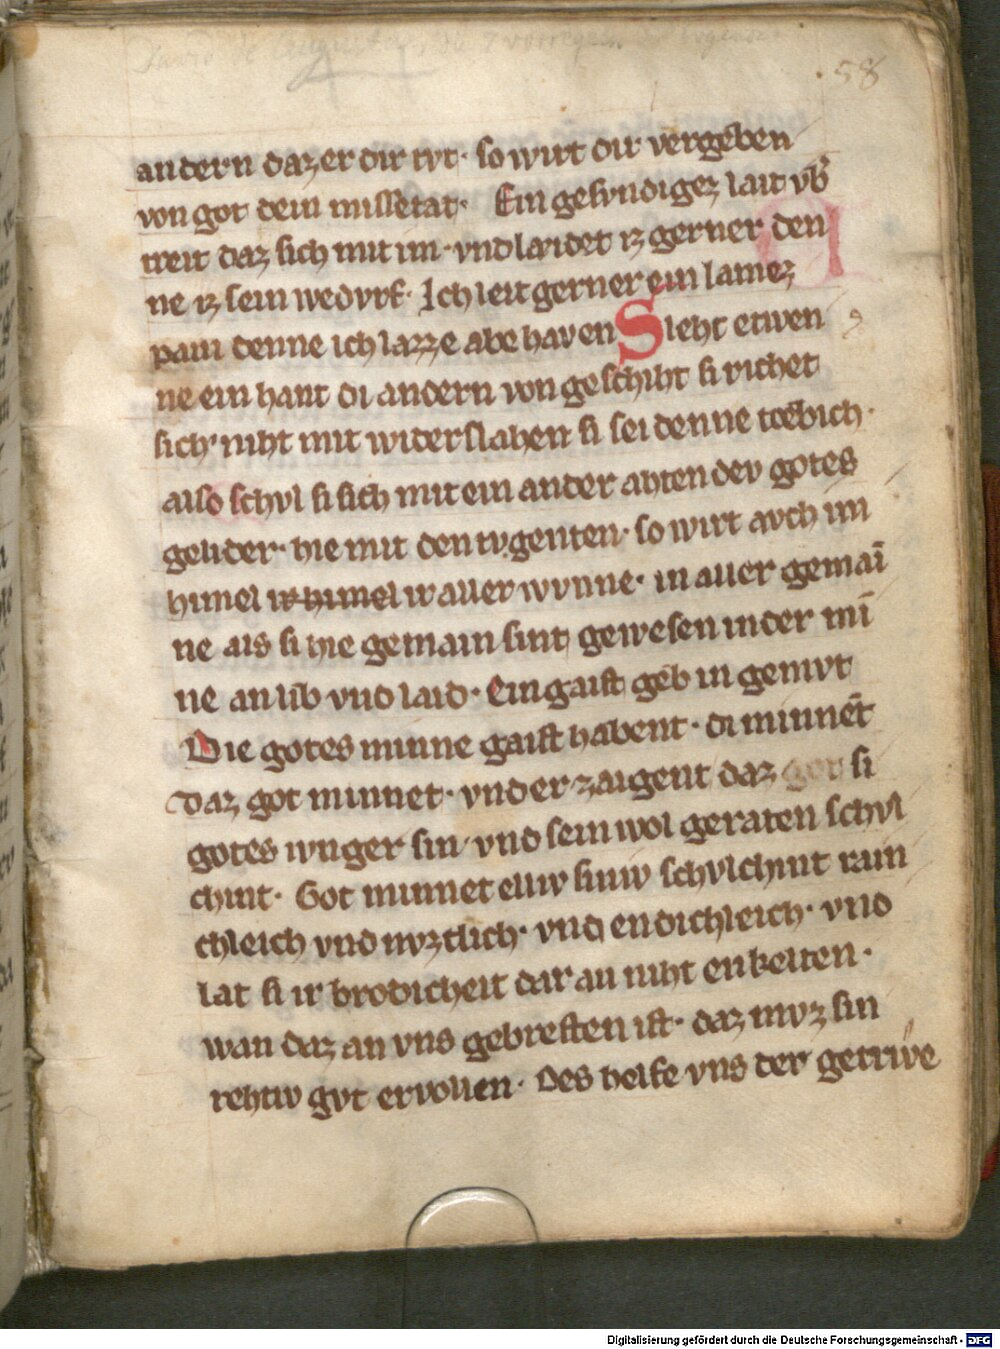 58
andern daz er dir tvt· so wirt dir vergeben
von got dein missetat· Ein gesvndigez lait vb̄
treit daz sich mit im· vnd laidet iz gerner den
ne iz sein wedvrf· Ich leit gerner ein lamez
pain denne ich lazze abe haven Sleht etwen
ne ein hant di andern von geschiht si richet
sich niht mit widerslahen si sei denne toebich·
also schvl si sich mit ein ander ahten dev gotes
gelider· hie mit den tvgenten· so wirt avch im
himel ir himel ir aller wnne· in aller gemai̅
ne als si hie gemain sint gewesen in der mi̅
ne an lib vnd laid· Ein gaist geb in gemvt
Die gotes minne gaist habent· di minne̅t
daz got minnet· vnd er zaigent daz got si
gotes ivnger sin vnd sein wol geraten schvl
chint· Got minnet elliv siniv schvlchint rain
chleich vnd nvztlich· vnd endichleich· vnd
lat si ir brodicheit dar an niht enkelten·
wan daz an vns gebresten ist· daz mvz sin
rehtiv gvt ervollen· Des helfe vns der getriwe
Digitalisierung gefördert durch die Deutsche Forschungsgemeinschaft - DFG